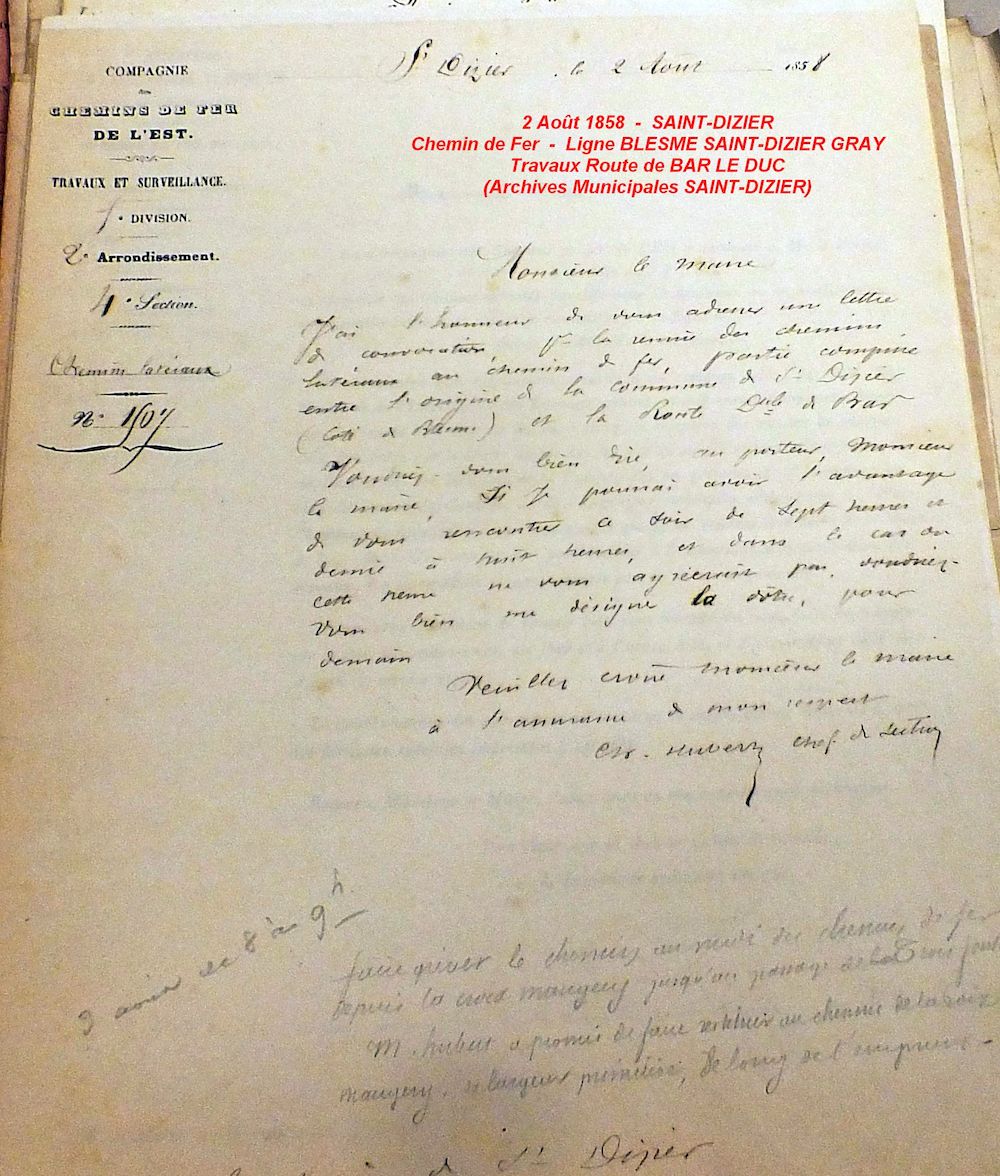 St Dizier, le 2 Août 1858
COMPAGNIE
des
CHEMINS DE FER
DE L'EST.
TRAVAUX ET SURVEILLANCE.
1e DIVISION.
2e Arrondissement.
4e Section.
Chemins latéraux
No 1507
2 Août 1858 - SAINT-DIZIER
Chemin de Fer - Ligne BLESME SAINT-DIZIER GRAY
Travaux Route de BAR LE DUC
(Archives Municipales SAINT-DIZIER)
Monsieur le maire
J'ai l'honneur de vous adresser une lettre
de convocation, pr la remise des chemins
latéraux au chemin de fer, partie comprise
entre l'origine de la commune de St Dizier
(coté de Blesme) et la Route Dale de Bar
Voudriez-vous bien dire, au porteur, Monsieur
le maire, si je pourrai avoir l'avantage
de vous rencontrer ce soir de sept heures et
demie à huit heures, et dans le cas où
cette heure ne vous agréerait pas, voudriez-
vous bien me désigner la vôtre, pour
demain
Veuillez croire monsieur le maire
à l'assurance de mon respect
Ch. Hubert chef de section
3 août de 8 à 9h
faire graver le chemin au midi du chemin de fer
depuis la croix maugery jusqu'au passage de la
M. hubert a promis de faire restituer au chemin de la croix
maugery, sa largeur primitive, de long de l'
de St Dizier